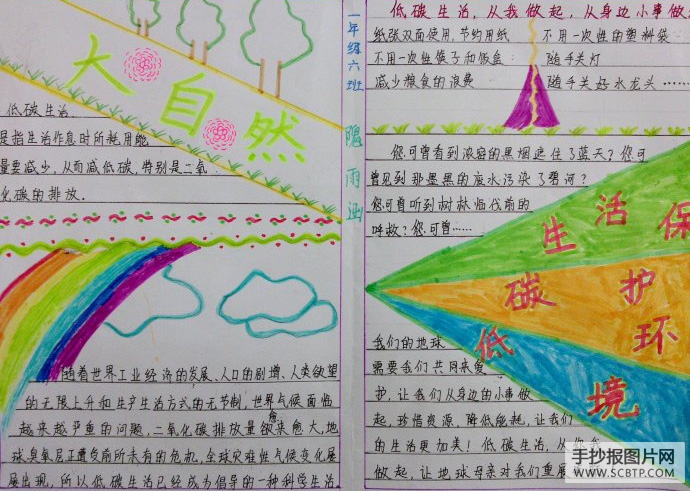 大自然
低碳生活
是指生活作息时所耗用能
量要减少,从而减低碳,特别是二氧
化碳的排放.
随着世界工业经济的发展、人口的剧增、人类欲望
的无限上升和生产生活方式的无节制,世界气候面临
越来越严重的问题,二氧化碳排放量欲来愈大,地
愈
球臭氧层正遭受前所未有的危机,全球灾难性气候变化屡
屡出现,所以低碳生活已经成为倡导的一种科学生活
一年级六班
雨涵
低碳生活,从我做起,从身边小事做
纸张双面使用,节约用纸
不用一次性筷子和饭盒
减少粮食的浪费
不用一次性的塑料袋
随手关灯
随手关好水龙头……
您可曾看到浓密的黑烟遮住了蓝天?您可
曾见到那墨黑的废水污染了碧河?
您可曾听到树林临伐前的
呼救?您可曾……
生活保
碳护
低环
境
我们的地球
需要我们共同来爱
护,让我们从身边的小事做
起,珍惜资源,降低能耗,让我们
的生活更加美!低碳生活,从你我
做起,让地球母亲对我们重展
手抄报图片网
WWW.SCBTP.COM